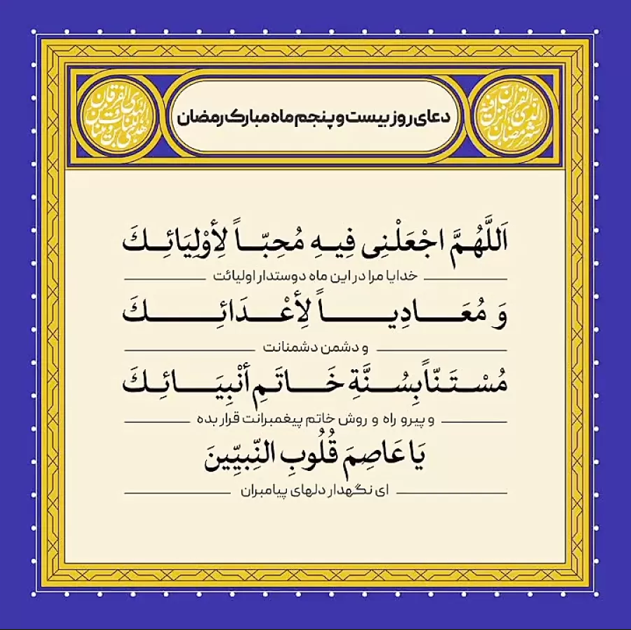 دعای روز بیست و پنجم ماه مبارک رمضان
اَللَّهُمَّ اجْعَلْنِی فِیهِ مُحِبّاً لِأَوْلِیَائِكَ
خدایا مرا در این ماه دوستدار اولیائت
وَ مُعَادِیاً لِأَعْدَائِكَ
و دشمن دشمنانت
مُسْتَنّاً بِسُنَّةِ خَاتَمِ أَنْبِیَائِكَ
و پیرو راه و روش خاتم پیغمبرانت قرار بده
یَا عَاصِمَ قُلُوبِ النَّبِیِّینَ
ای نگهدار دلهای پیامبران